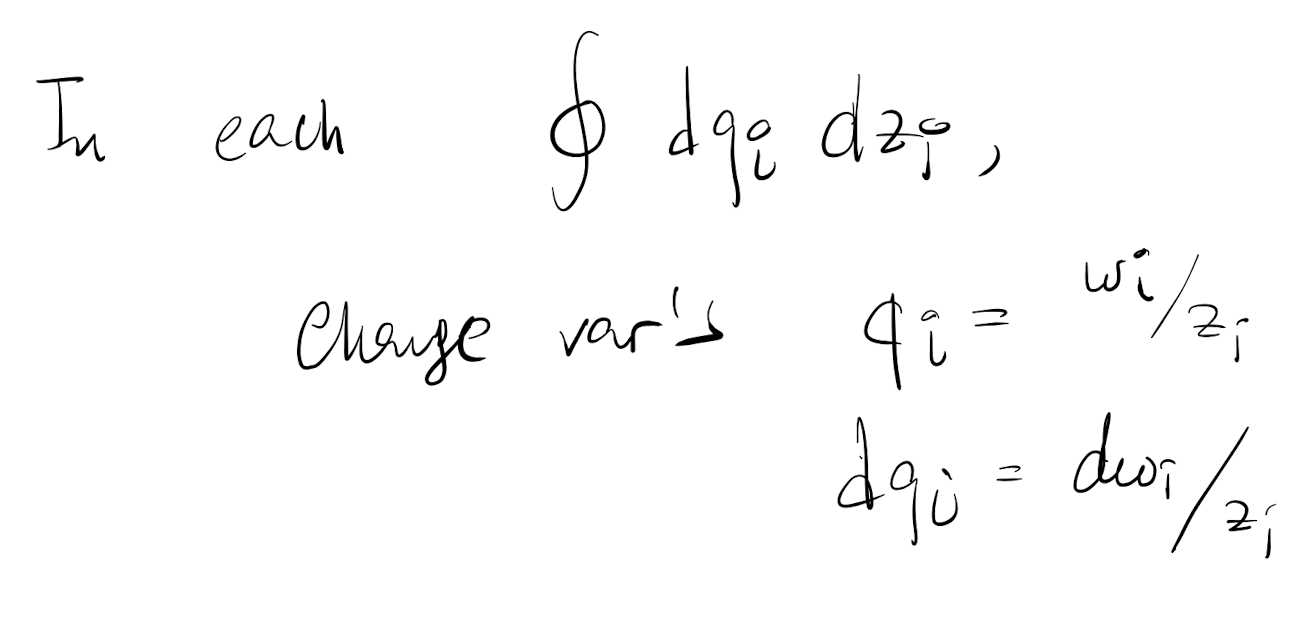 In each ∮ dqᵢ dzᵢ,
Change var's qᵢ = wᵢ/zᵢ
dqᵢ = dwᵢ/zᵢ